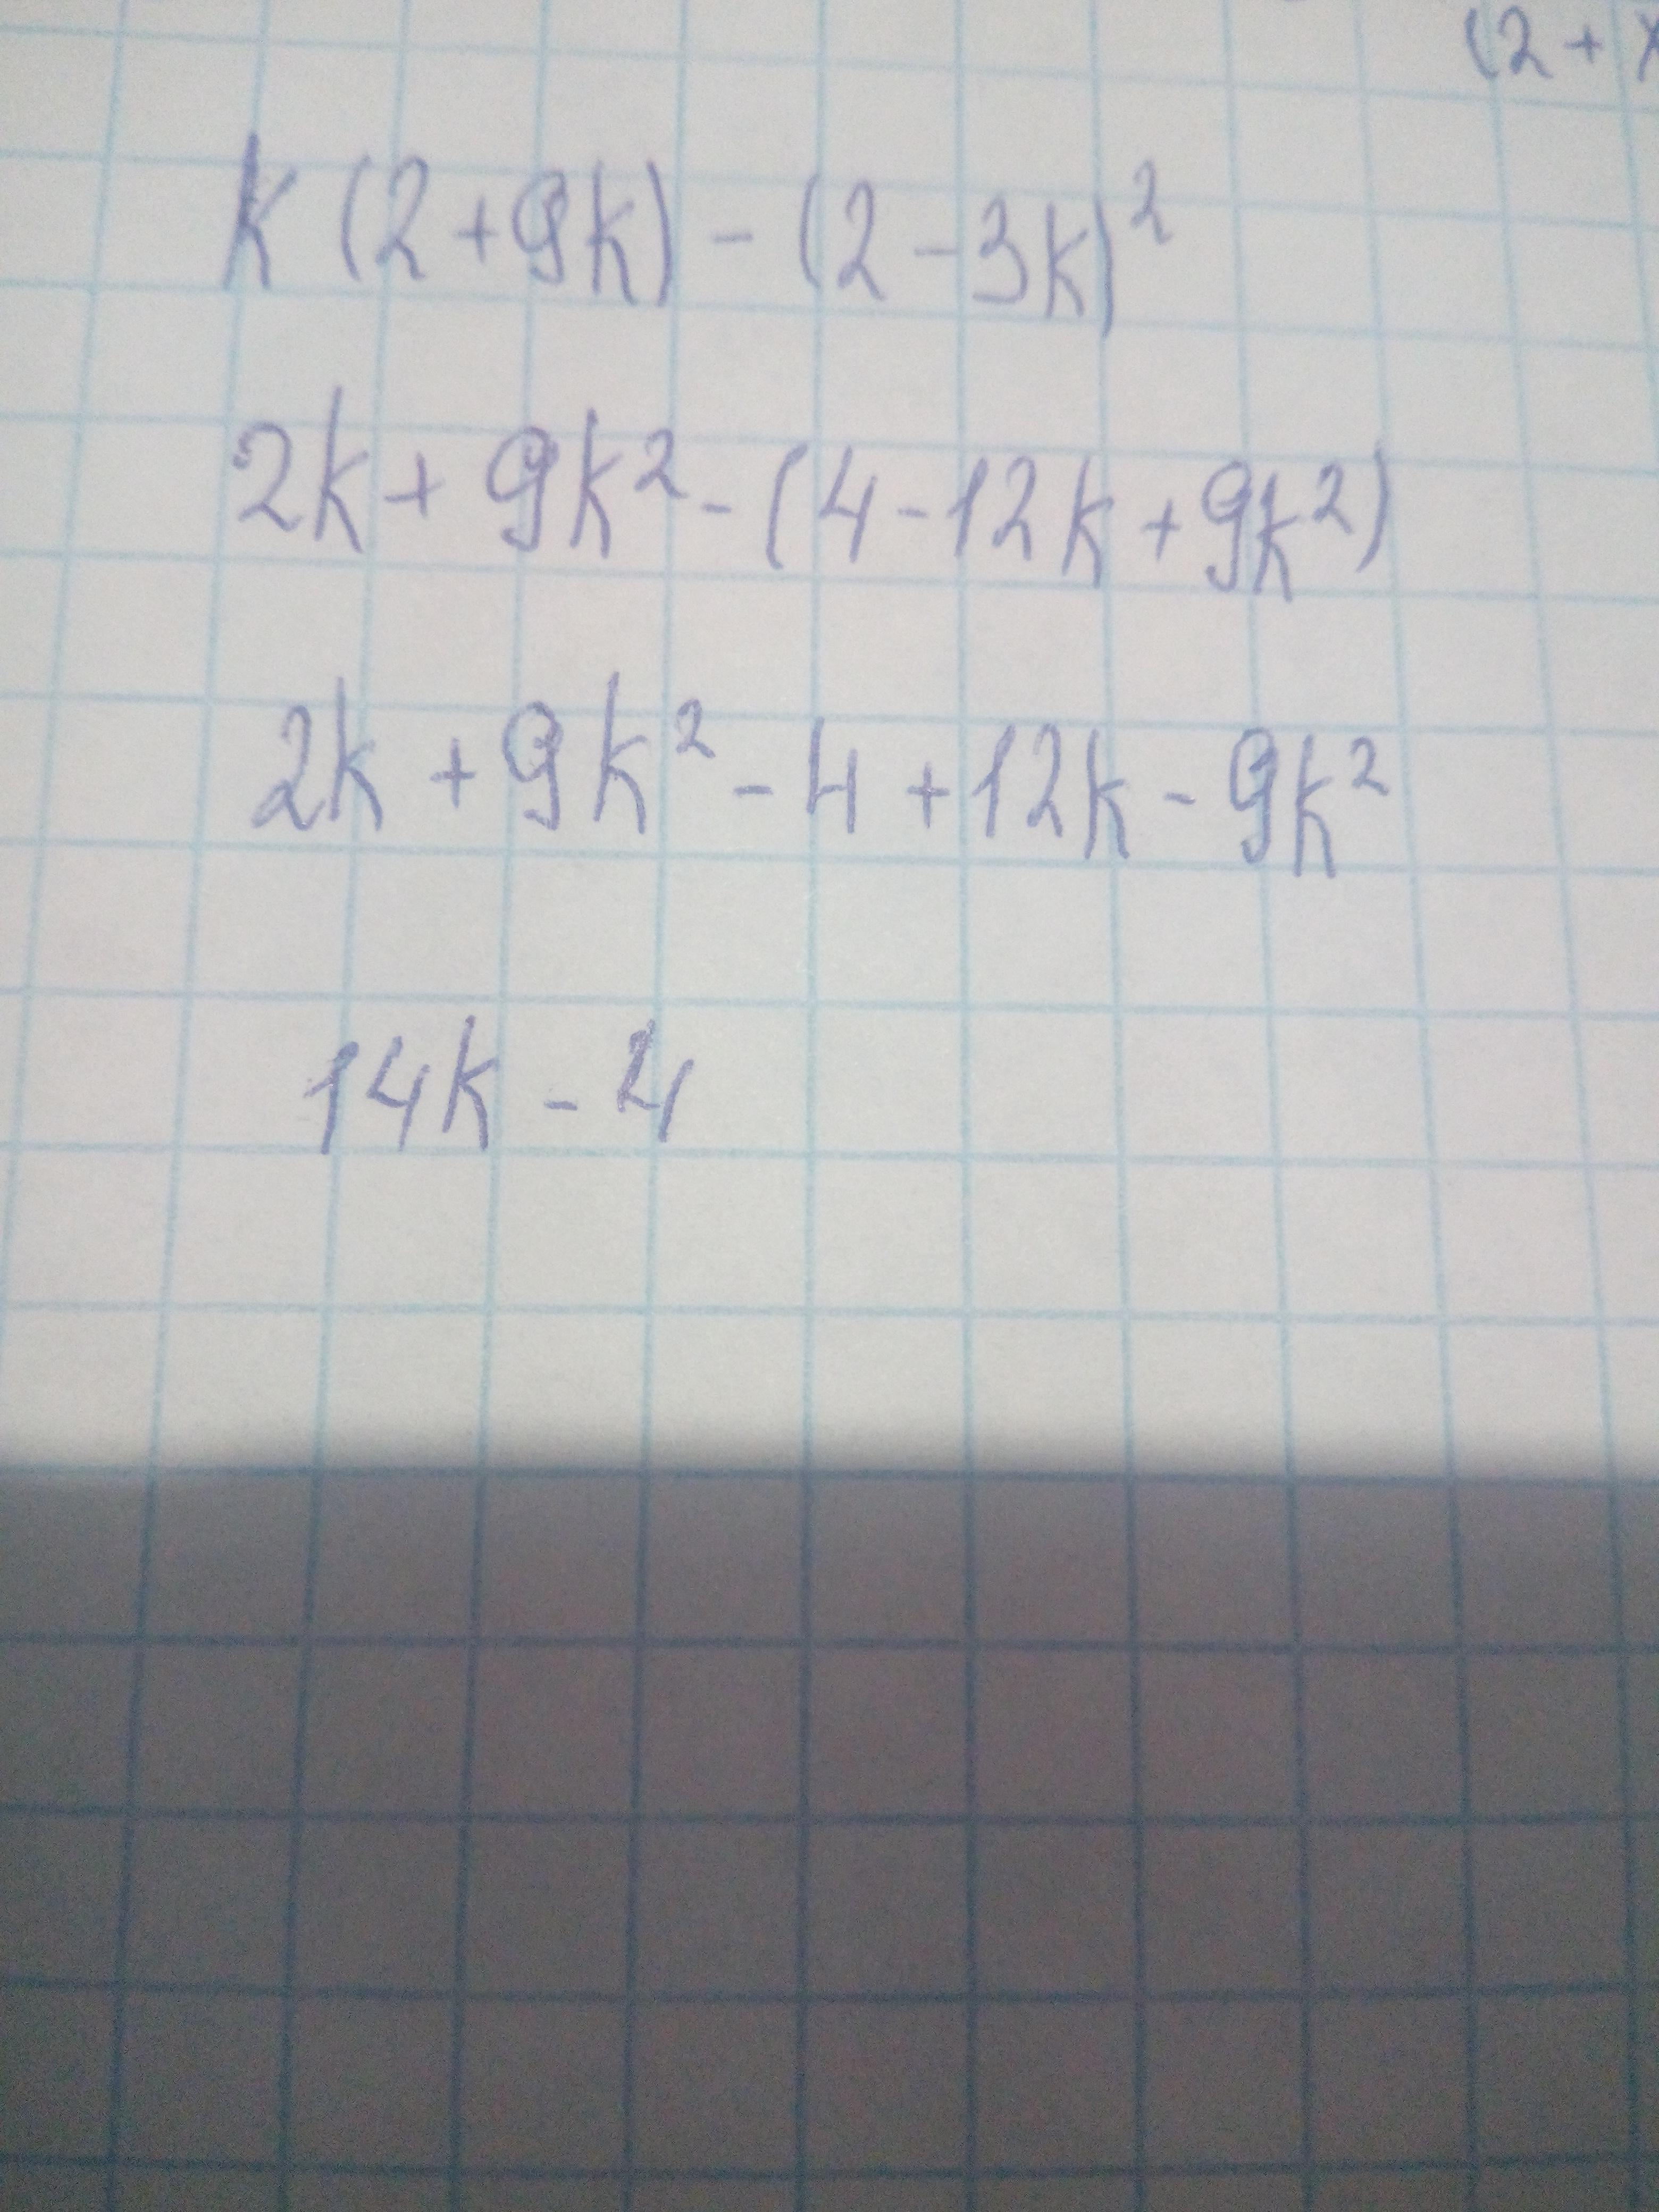 (2 + x
k(2+9k) - (2-3k)²
2k + 9k² - (4-12k+9k²)
2k + 9k² - 4 + 12k - 9k²
14k - 4